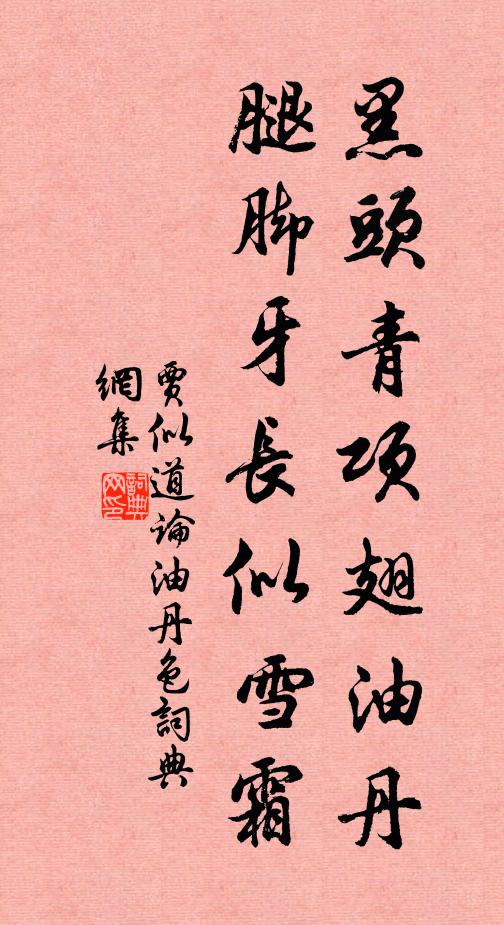 黑頭青項翅油丹
腿脚牙長似雪霜
賈似道論油丹色詞典
網集
詞典
网印